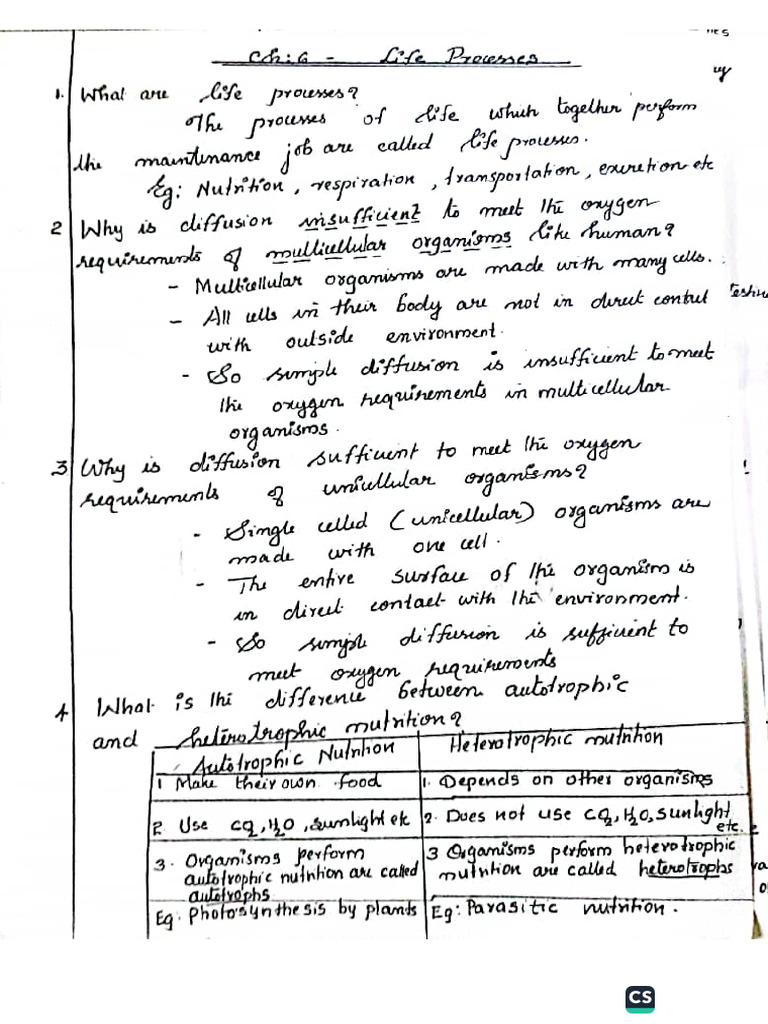 Ch: 6 - Life Processes
1. What are life processes?
The processes of life which together perform
the maintenance job are called life processes.
Eg: Nutrition, respiration, transportation, excretion etc
2 Why is diffusion insufficient to meet the oxygen
requirements of multicellular organisms like human?
- Multicellular organisms are made with many cells.
- All cells in their body are not in direct contact
with outside environment.
- So simple diffusion is insufficient to meet
the oxygen requirements in multicellular
organisms.
3 Why is diffusion sufficient to meet the oxygen
requirements of unicellular organisms?
- Single celled (unicellular) organisms are
made with one cell.
- The entire surface of the organism is
in direct contact with the environment.
- So simple diffusion is sufficient to
meet oxygen requirements
4 What is the difference between autotrophic
and heterotrophic nutrition?
Autotrophic Nutrition
Heterotrophic nutrition
1 Make their own food
1. Depends on other organisms
2. Use CO₂, H₂O, sunlight etc
2. Does not use CO₂, H₂O, sunlight
etc.
3. Organisms perform
autotrophic nutrition are called
autotrophs
3 Organisms perform heterotrophic
nutrition are called heterotrophs
Eg: Photosynthesis by plants
Eg: Parasitic nutrition.
CS